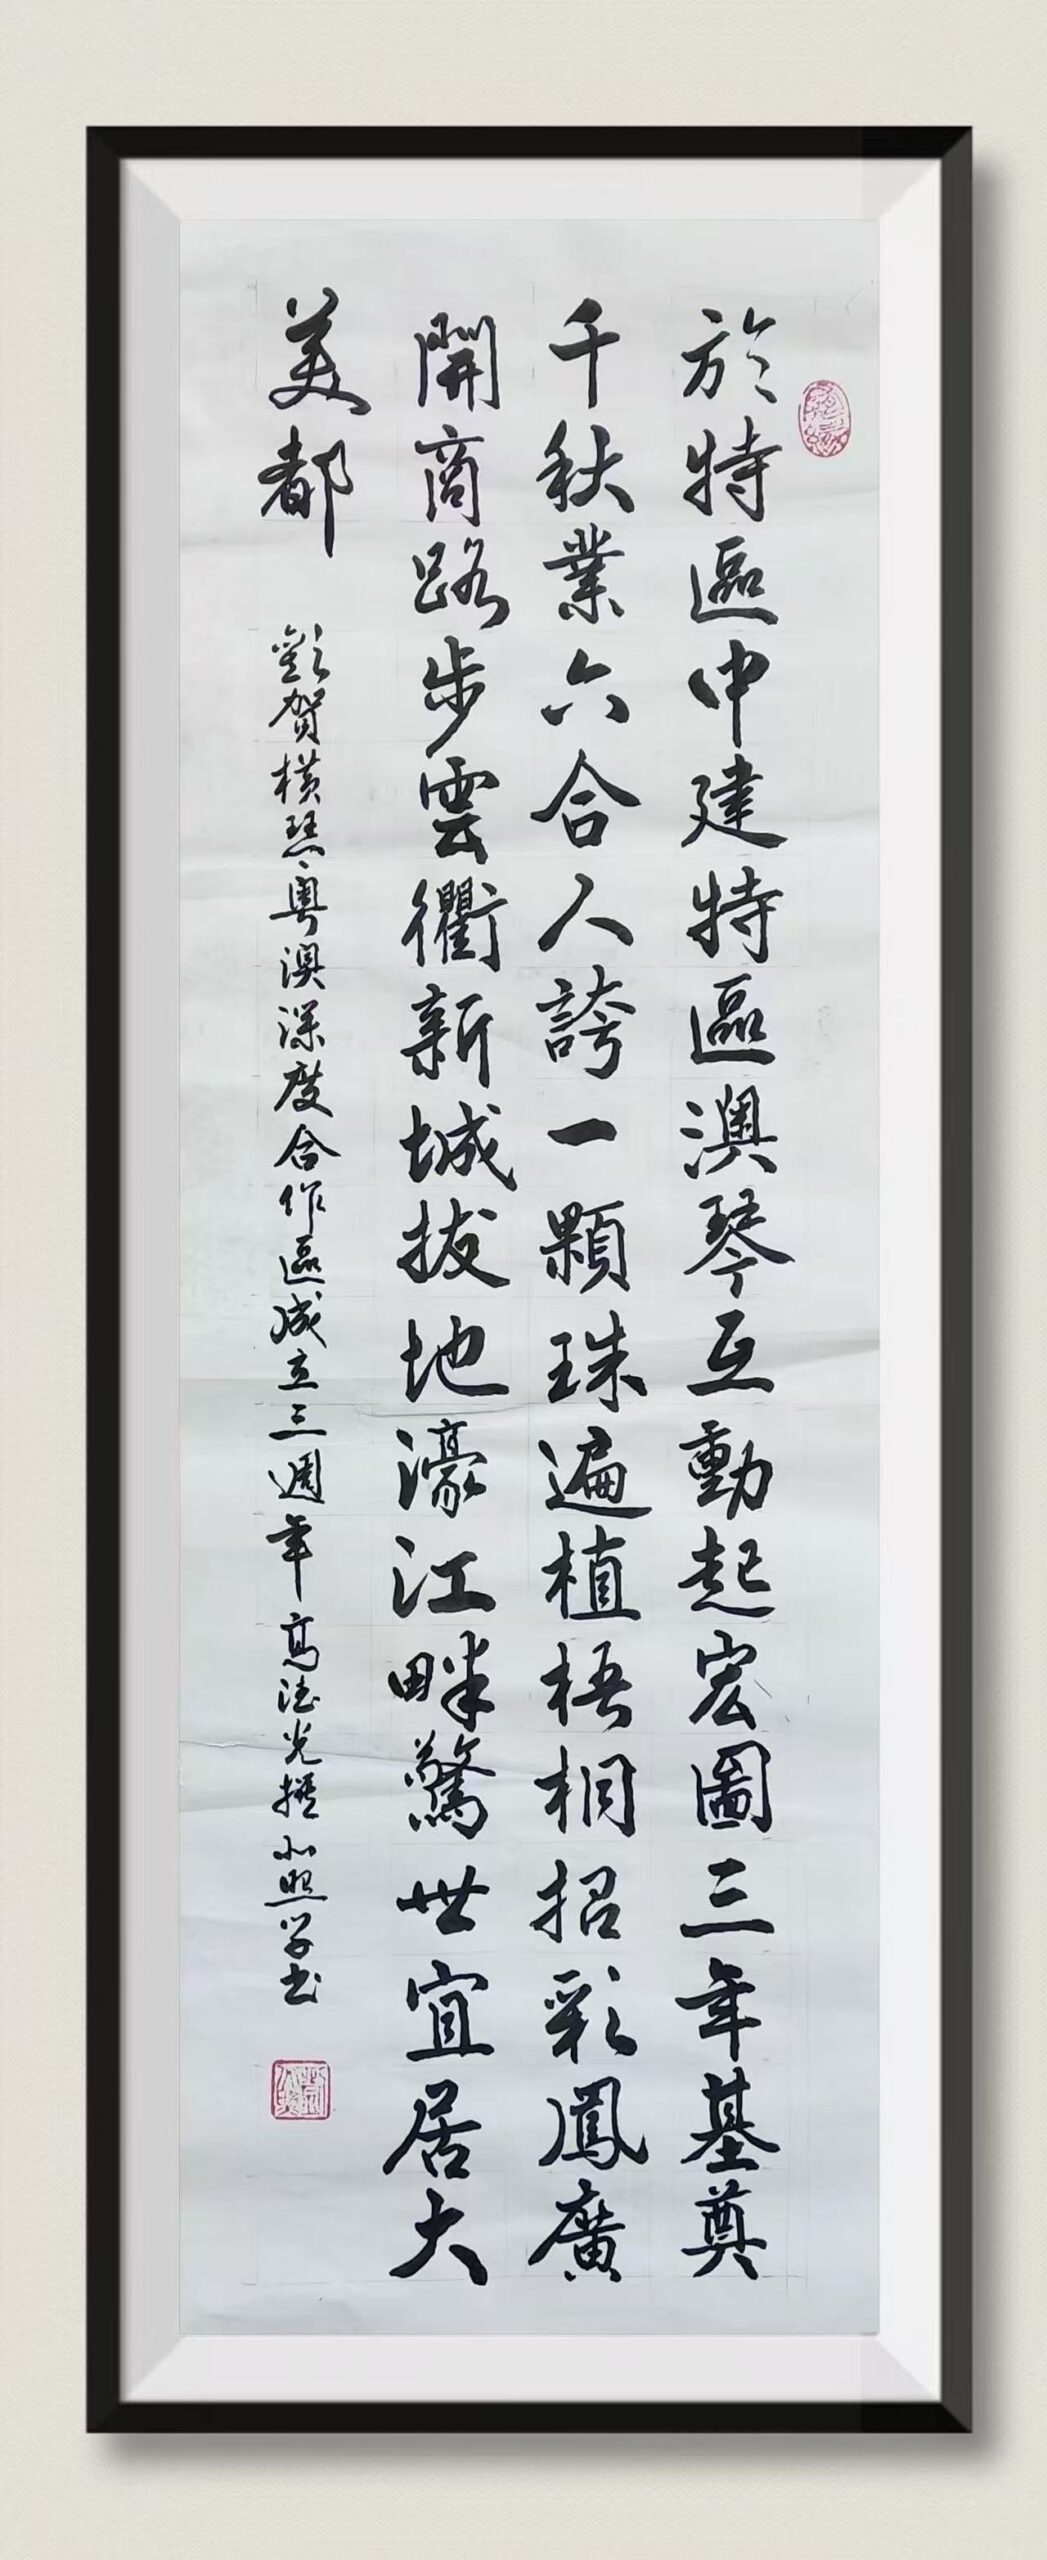 於特區中建特區澳琴互動起宏圖三年基奠
千秋業六合人誇一顆珠遍植梧桐招彩鳳廣
開商路步雲衢新城拔地濠江畔驚世宜居大
美都
歡賀橫琴粵澳深度合作區成立三週年 高德光撰 照學書